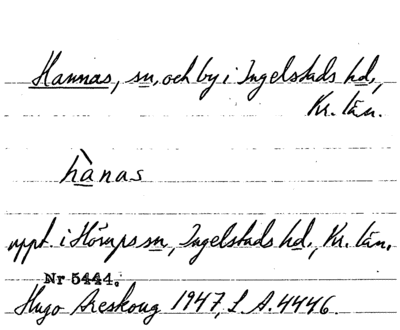 Hannas, sn, och by i Ingelstads hd,
Kr. län.
hànas
uppt. i Hörups sn, Ingelstads hd., Kr. län.
Nr 5444.
Hugo Areskoug 1947, L. A. 4446.